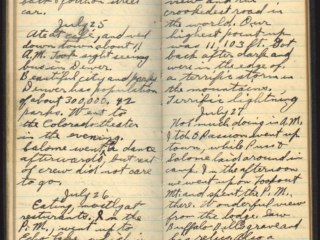 car.
July 25
Ate at cafe, and went
down town about 11
A.M. Took sight seeing
bus in Denver.
Beautiful city and parks
Denver has population
of about 300,000. 42
parks. Went to
the Colorado theater
in the evening.
Salone went to a dance
afterwards, but rest
of crew did not care
to go.
July 26
Eating mostly at
resturants. In the
P.M., went up to
view and
crookedest road in
the world. Our
highest point up
was 11,103 ft. Got
back after dark and
were in the edge of
a terrific storm in
the mountains.
Terrific lightning
July 27
Not much doing in A.M.
town, while I and
Salone laid around in
camp. In the afternoon
we went up to Lookout
Mt. and spent the P.M.
there. Wonderful view
from the lodge. Saw
Buffalo Bill's grave and
his relics. Also a